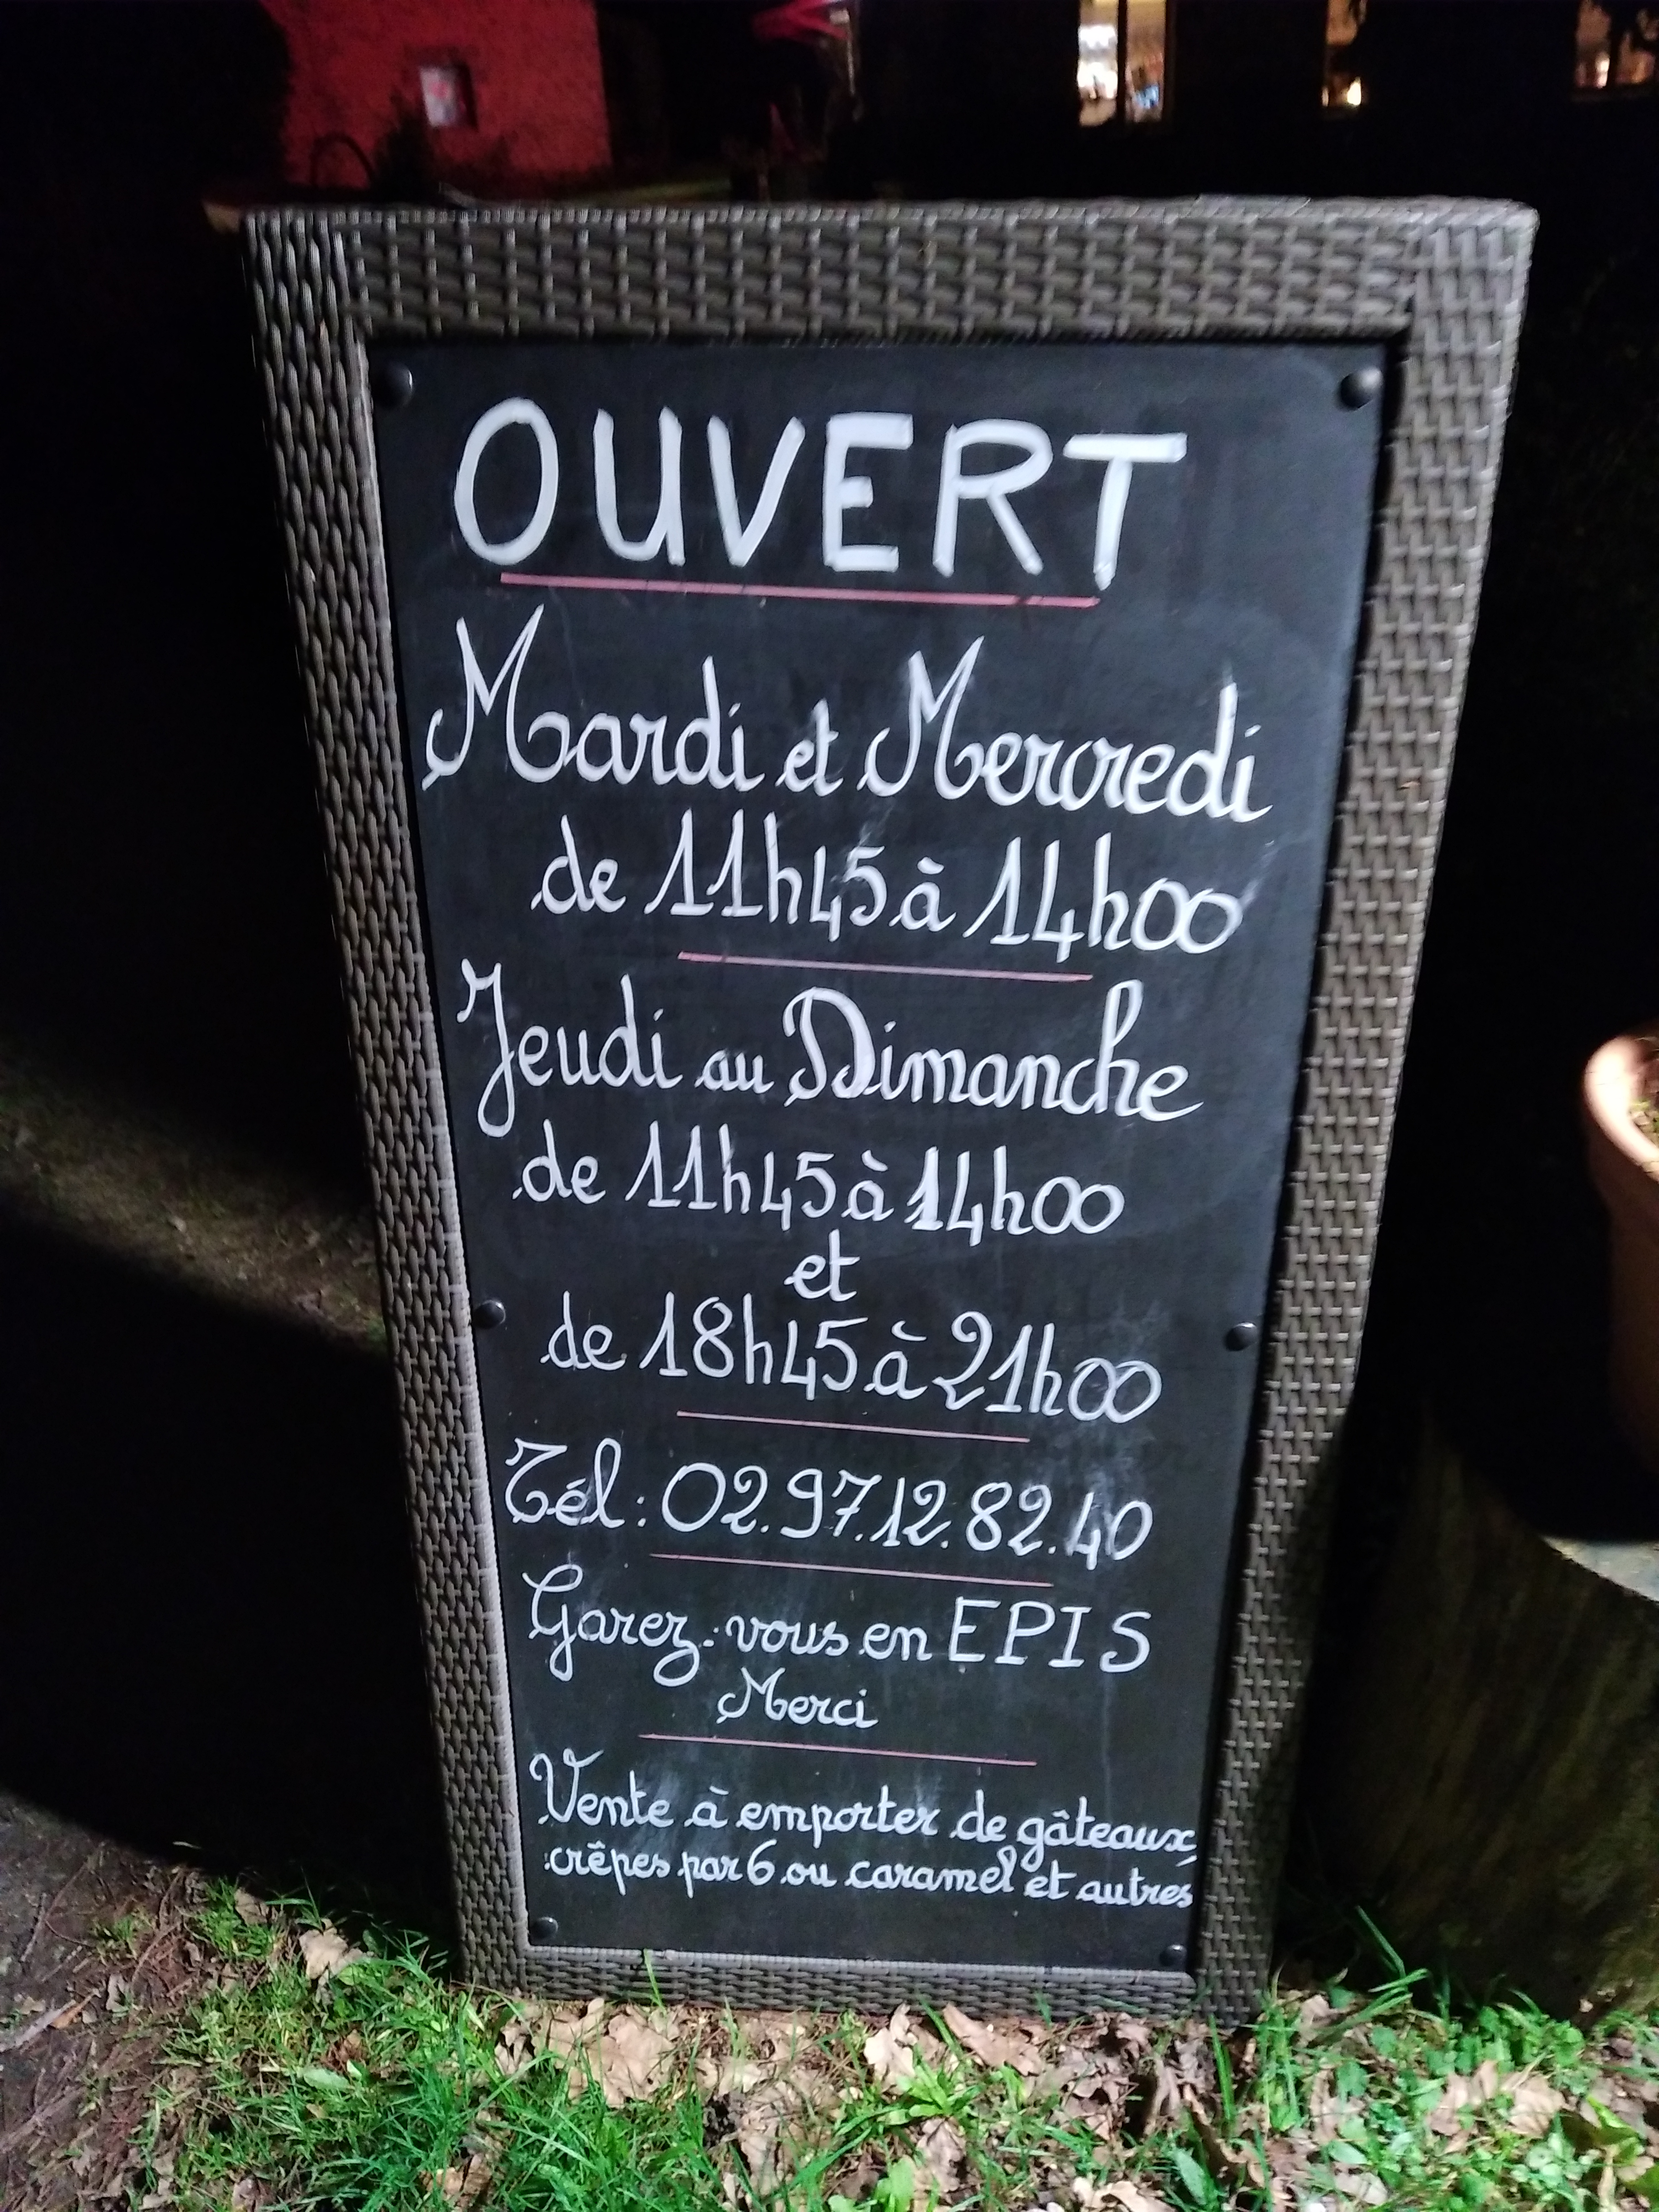 OUVERT
Mardi et Mercredi
de 11h45 à 14h00
Jeudi au Dimanche
de 11h45 à 14h00
et
de 18h45 à 21h00
Tél : 02.97.12.82.40
Garez-vous en EPIS
Merci
Vente à emporter de gâteaux,
crêpes par 6 ou caramel et autres